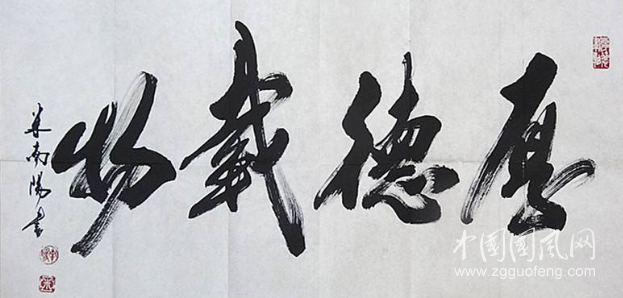 厚德載物
米南陽書
中国國风网
www.zgguofeng.com